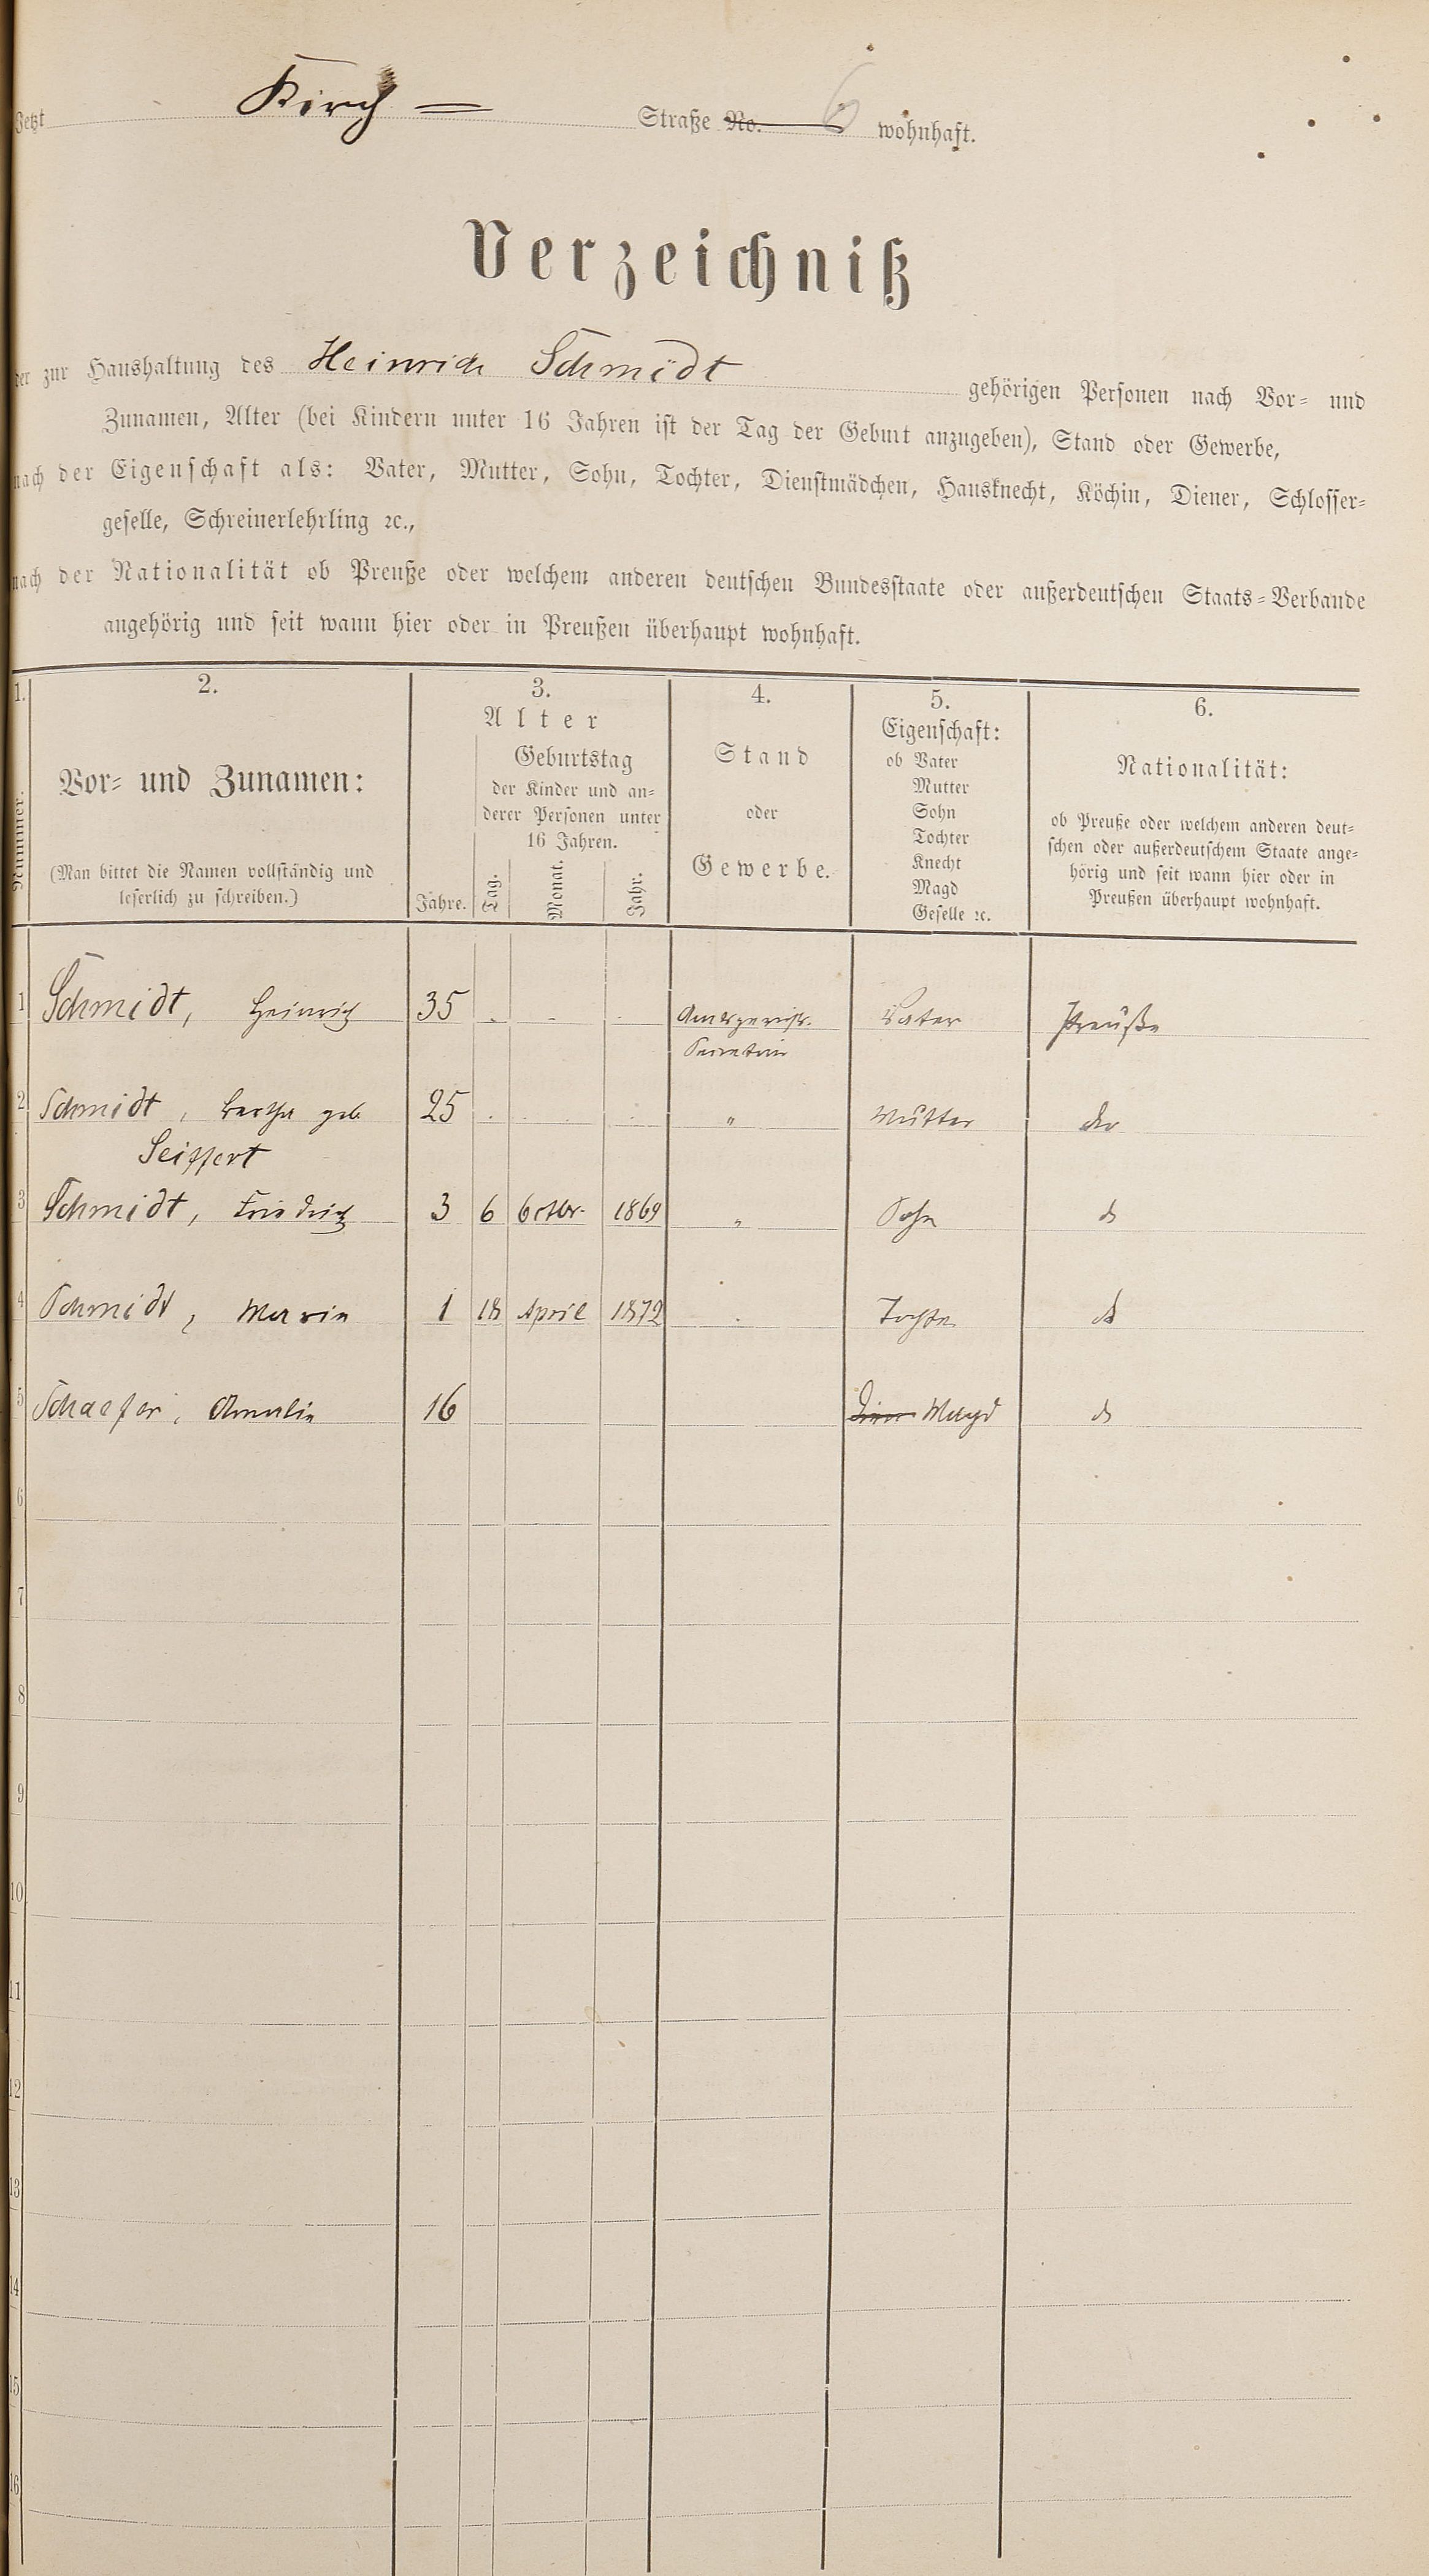 Jetzt Kirch- Straße No. 6 wohnhaft.
Verzeichniß
der zur Haushaltung des Heinrich Schmidt gehörigen Personen nach Vor- und
Zunamen, Alter (bei Kindern unter 16 Jahren ist der Tag der Geburt anzugeben), Stand oder Gewerbe,
nach der Eigenschaft als: Vater, Mutter, Sohn, Tochter, Dienstmädchen, Hausknecht, Köchin, Diener, Schlosser-
geselle, Schreinerlehrling ꝛc.,
nach der Nationalität ob Preuße oder welchem anderen deutschen Bundesstaate oder außerdeutschen Staats-Verbande
angehörig und seit wann hier oder in Preußen überhaupt wohnhaft.
1.
Nummer.
2.
Vor- und Zunamen:
(Man bittet die Namen vollständig und
leserlich zu schreiben.)
3.
Alter
Jahre.
Geburtstag
der Kinder und an-
derer Personen unter
16 Jahren.
Tag. Monat. Jahr.
4.
Stand
oder
Gewerbe.
5.
Eigenschaft:
ob Vater
Mutter
Sohn
Tochter
Knecht
Magd
Geselle ꝛc.
6.
Nationalität:
ob Preuße oder welchem anderen deut-
schen oder außerdeutschem Staate ange-
hörig und seit wann hier oder in
Preußen überhaupt wohnhaft.
1 Schmidt, Heinrich 35 . . . Amtsgerichts- Vater Preuße
Secretair
2 Schmidt, Bertha geb 25 . . . " Mutter do
Seiffert
3 Schmidt, Friedrich 3 6 Octbr. 1869 " Sohn do
4 Schmidt, Maria 1 18 April 1872 . Tochter do
5 Schaefer, Amalie 16 Magd do
6
7
8
9
10
11
12
13
14
15
16